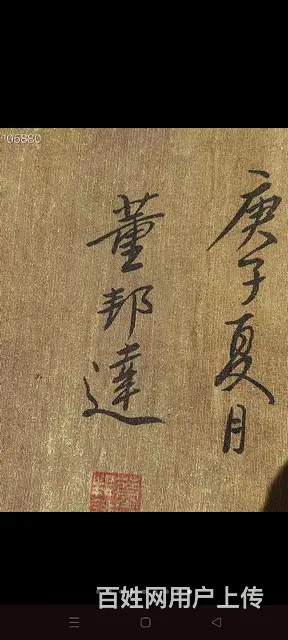 705880
庚子夏月
董邦達
百姓网用户上传